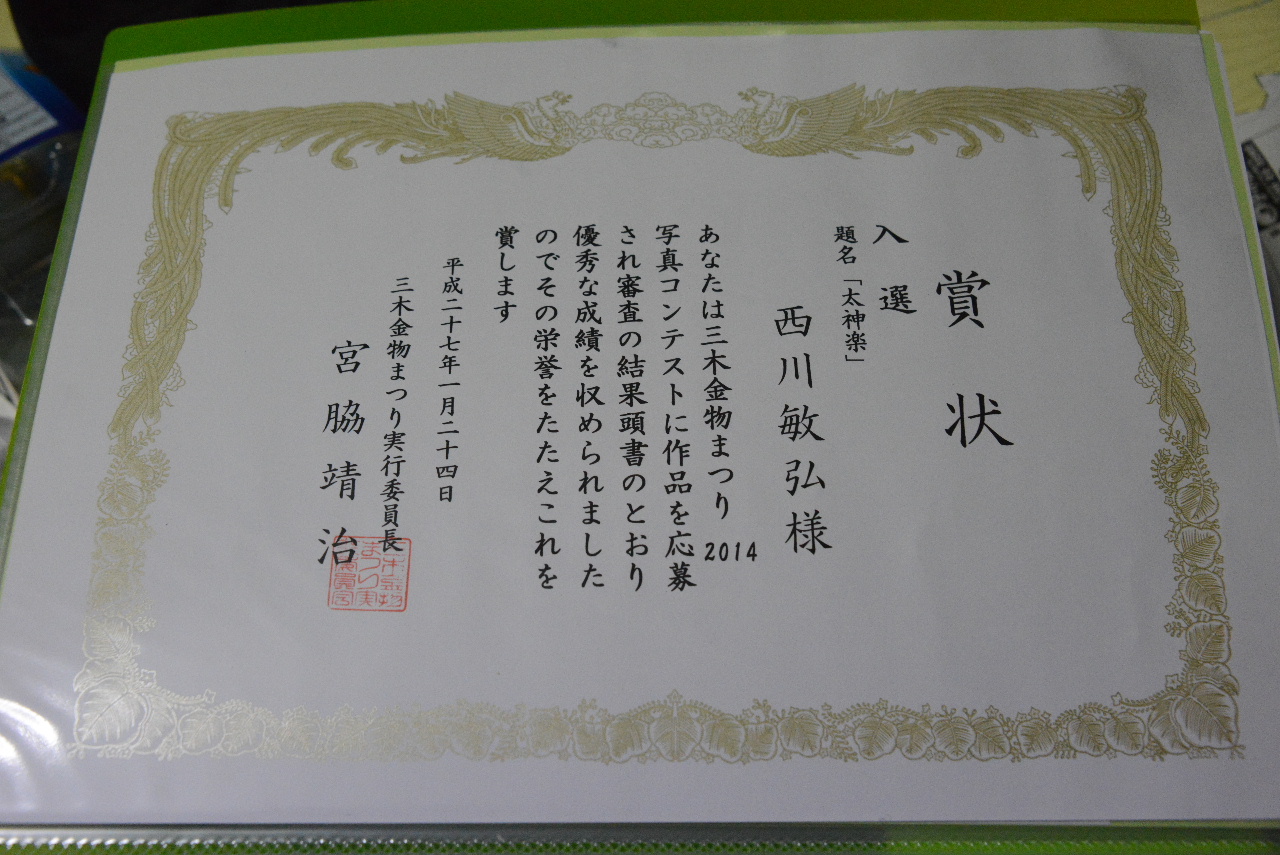 賞状
入選
題名「太神楽」
西川敏弘様
あなたは三木金物まつり2014
写真コンテストに作品を応募
され審査の結果頭書のとおり
優秀な成績を収められました
のでその栄誉をたたえこれを
賞します
平成二十七年一月二十四日
三木金物まつり実行委員長
宮脇靖治